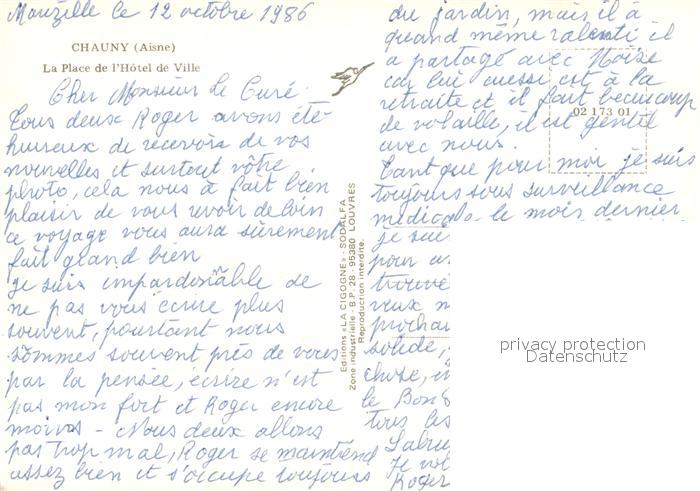 le 12 octobre 1986
CHAUNY (Aisne)
La Place de l'Hôtel de Ville
Cher Monsieur Le Curé.
Tous deux Roger avons été
heureux de recevoir de vos
nouvelles et surtout vôtre
photo, cela nous à fait bien
plaisir de vous revoir de loin
ce voyage vous aura sûrement
fait grand bien
Je suis impardonable de
ne pas vous écrire plus
souvent, pourtant nous
sommes souvent près de vous
par la pensée, écrire n'est
pas mon fort et Roger encore
moins - Nous deux allons
pas trop mal, Roger se maintiend
assez bien et s'occupe toujours
Editions «LA CIGOGNE» - SODALFA
Zone industrielle - B.P. 28 - 95380 LOUVRES
Reproduction interdite.
du jardin, mais il à
quand même ralenti il
a partagé avec
car lui aussi est à la
retraite et il fait beaucoup
de volaille, il est gentil
avec nous.
02 173 01
Tant que pour moi je suis
toujours sous surveillance
médicale le mois dernier
je sui
pour
trouvé
veux
prochai
solide,
chose,
le Bon
tous les
Je
Roger
privacy protection
Datenschutz